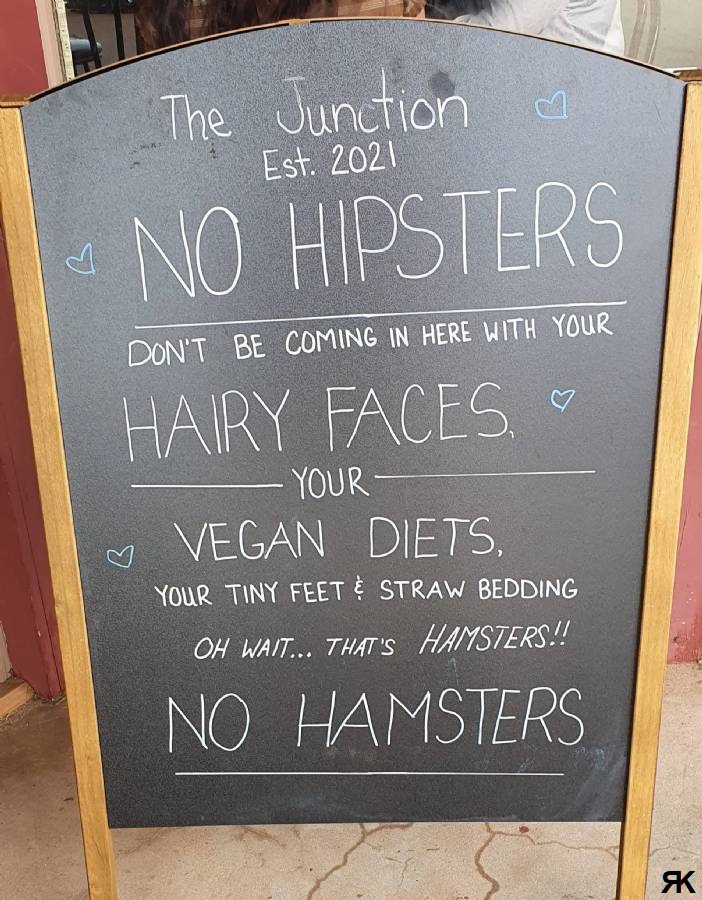 The Junction
Est. 2021
NO HIPSTERS
DON'T BE COMING IN HERE WITH YOUR
HAIRY FACES,
YOUR
VEGAN DIETS,
YOUR TINY FEET & STRAW BEDDING
OH WAIT... THAT'S HAMSTERS!!
NO HAMSTERS
ЯK